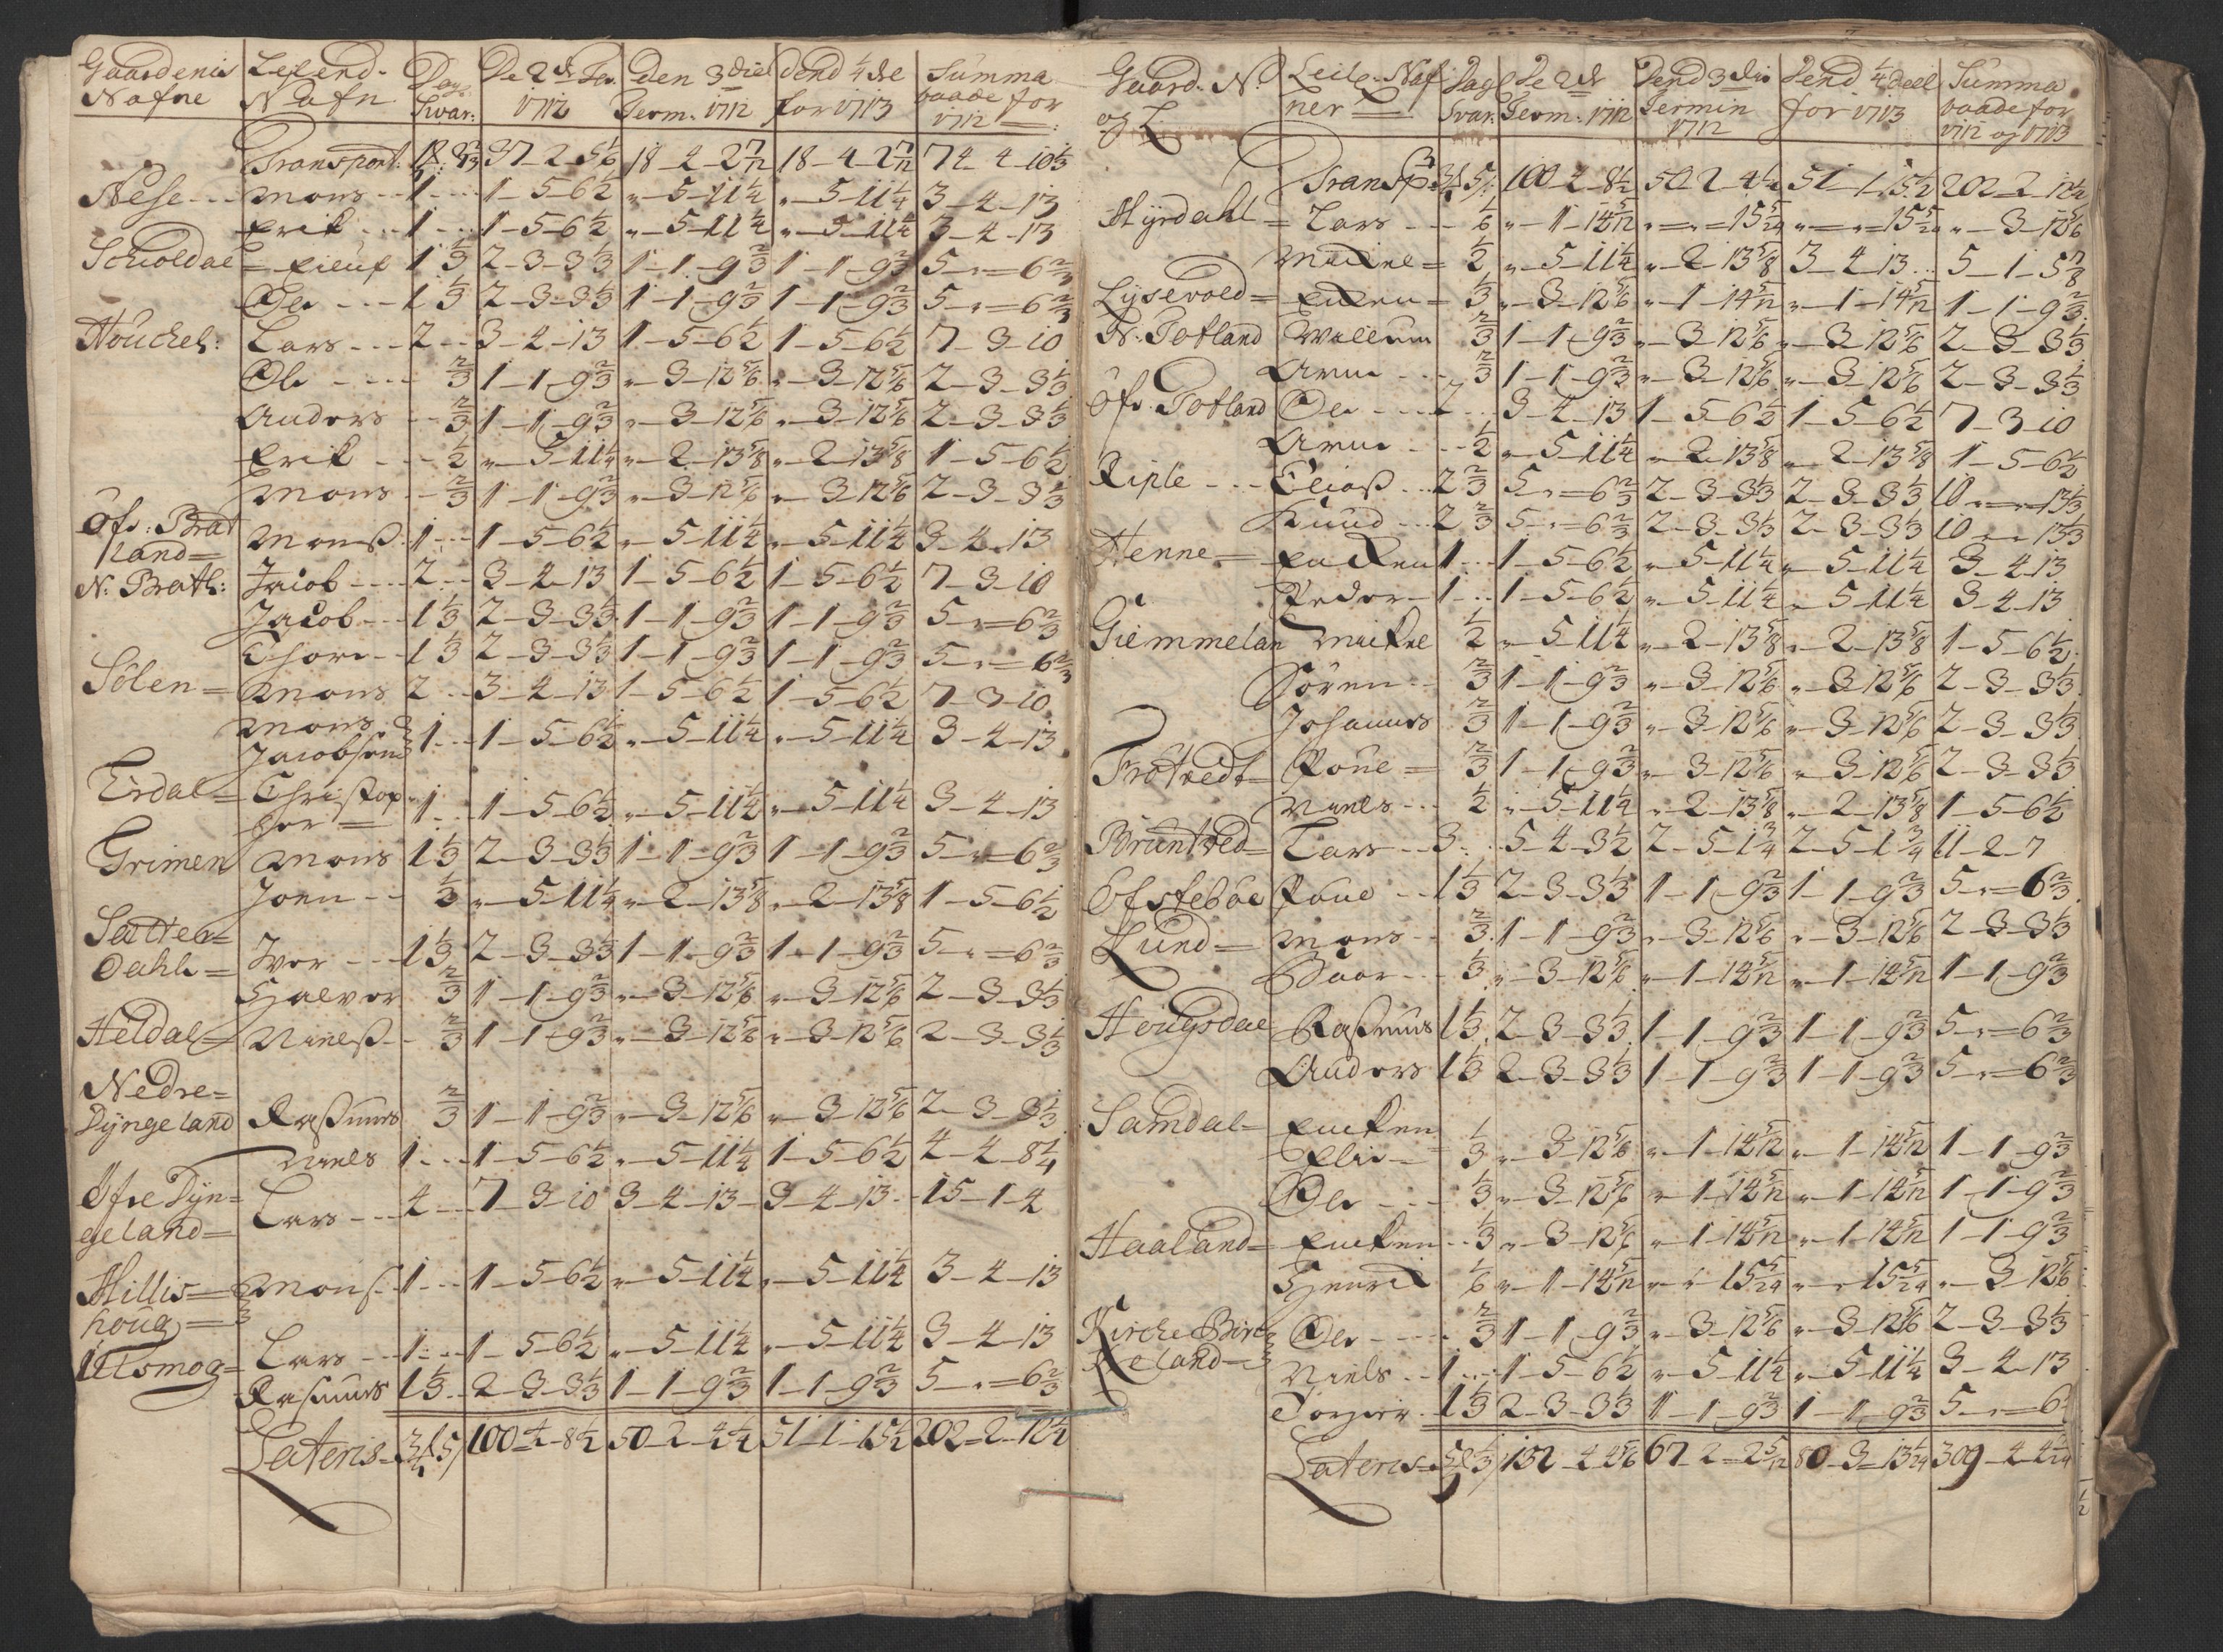 Gaardenis Nafne | Leilend. Nafn | Dags Svar: | De 2de Ter. 1712 | Den 3die Term. 1712 | dend 1/4 de for 1713 | Summa baade for 1712
Transport: | 18 | 37-2-5 1/6 | 18-4-2 7/12 | 18-4-2 7/12 | 74-4-10 1/3
Nese | Mons | 1 | 1-5-6 1/2 | "-5-11 1/4 | "-5-11 1/4 | 3-4-13
Erik | 1 | 1-5-6 1/2 | "-5-11 1/4 | "-5-11 1/4 | 3-4-13
Schioldal | Eiluf | 1 1/3 | 2-3-3 1/3 | 1-1-9 2/3 | 1-1-9 2/3 | 5-"-6 2/3
Ole | 1 1/3 | 2-3-3 1/3 | 1-1-9 2/3 | 1-1-9 2/3 | 5-"-6 2/3
Houchel: | Lars | 2 | 3-4-13 | 1-5-6 1/2 | 1-5-6 1/2 | 7-3-10
Ole | 2/3 | 1-1-9 2/3 | "-3-12 5/6 | "-3-12 5/6 | 2-3-3 1/3
Anders | 2/3 | 1-1-9 2/3 | "-3-12 5/6 | "-3-12 5/6 | 2-3-3 1/3
Erik | 1/2 | "-5-11 1/4 | "-2-13 5/8 | "-2-13 5/8 | 1-5-6 1/2
Mons | 2/3 | 1-1-9 2/3 | "-3-12 5/6 | "-3-12 5/6 | 2-3-3 1/3
Öfr: Brat
land | Monß | 1 | 1-5-6 1/2 | "-5-11 1/4 | "-5-11 1/4 | 3-4-13
N: Brath: | Jacob | 2 | 3-4-13 | 1-5-6 1/2 | 1-5-6 1/2 | 7-3-10
Jacob | 1 1/3 | 2-3-3 1/3 | 1-1-9 2/3 | 1-1-9 2/3 | 5-"-6 2/3
Thore | 1 1/3 | 2-3-3 1/3 | 1-1-9 2/3 | 1-1-9 2/3 | 5-"-6 2/3
Sölen | Mons | 2 | 3-4-13 | 1-5-6 1/2 | 1-5-6 1/2 | 7-3-10
Mons
Jacobsen | 1 | 1-5-6 1/2 | "-5-11 1/4 | "-5-11 1/4 | 3-4-13
Erdal | Christop
her | 1 | 1-5-6 1/2 | "-5-11 1/4 | "-5-11 1/4 | 3-4-13
Grimen | Mons | 1 1/3 | 2-3-3 1/3 | 1-1-9 2/3 | 1-1-9 2/3 | 5-"-6 2/3
Joen | 1/2 | "-5-11 1/4 | "-2-13 5/8 | "-2-13 5/8 | 1-5-6 1/2
Satter
Dahle | Iver | 1 1/3 | 2-3-3 1/3 | 1-1-9 2/3 | 1-1-9 2/3 | 5-"-6 2/3
Halvor | 2/3 | 1-1-9 2/3 | "-3-12 5/6 | "-3-12 5/6 | 2-3-3 1/3
Heldal | Nielß | 2/3 | 1-1-9 2/3 | "-3-12 5/6 | "-3-12 5/6 | 2-3-3 1/3
Nedre
Dyngeland | Raßmus | 2/3 | 1-1-9 2/3 | "-3-12 5/6 | "-3-12 5/6 | 2-3-3 1/3
Niels | 1 | 1-5-6 1/2 | "-5-11 1/4 | 1-5-6 1/2 | 4-4-8 1/4
Öfre Dyn=
geland | Lars | 4 | 7-3-10 | 3-4-13 | 3-4-13 | 15-1-4
Hillis=
houg | Mons | 1 | 1-5-6 1/2 | "-5-11 1/4 | "-5-11 1/4 | 3-4-13
Lars | 1 | 1-5-6 1/2 | "-5-11 1/4 | "-5-11 1/4 | 3-4-13
Ulsmog | Rasmus | 1 1/3 | 2-3-3 1/3 | 1-1-9 2/3 | 1-1-9 2/3 | 5-"-6 2/3
Lateris | 100-4-8 1/2 | 50-2-4 1/4 | 51-1-15 1/2 | 202-2-12 1/4
Gaard. N. og L | Leil. Nafner | Dags Svar. | De 2de Term: 1712 | Dend 3die Termin 1712 | Dend 1/4 deel for 1713 | Summa baade for 1712 og 1713
Transp: | 100-4-8 1/2 | 50-2-4 1/4 | 51-1-15 1/2 | 202-2-12 1/4
Hyrdahl | Lars | 1/6 | "-1-14 5/12 | "-"-15 5/24 | "-"-15 5/24 | "-3-12 5/6
Mickel | 1/2 | "-5-11 1/4 | "-2-13 5/8 | 3-4-13 | 5-1-5 7/8
Lysevold | 1/3 | "-3-12 5/6 | "-1-14 5/12 | "-1-14 5/12 | 1-1-9 2/3
N. Totland | Willum | 2/3 | 1-1-9 2/3 | "-3-12 5/6 | "-3-12 5/6 | 2-3-3 1/3
Arne | 2/3 | 1-1-9 2/3 | "-3-12 5/6 | "-3-12 5/6 | 2-3-3 1/3
Öfr. Totland | Ole | 2 | 3-4-13 | 1-5-6 1/2 | 1-5-6 1/2 | 7-3-10
Arne | 1/2 | "-5-11 1/4 | "-2-13 5/8 | "-2-13 5/8 | 1-5-6 1/2
Riple | Eliaß | 2 2/3 | 5-"-6 2/3 | 2-3-3 1/3 | 2-3-3 1/3 | 10-"-13 1/3
Knud | 2 2/3 | 5-"-6 2/3 | 2-3-3 1/3 | 2-3-3 1/3 | 10-"-13 1/3
Henne | 1 | 1-5-6 1/2 | "-5-11 1/4 | "-5-11 1/4 | 3-4-13
Peder | 1 | 1-5-6 1/2 | "-5-11 1/4 | "-5-11 1/4 | 3-4-13
Giemmelan | Mickel | 1/2 | "-5-11 1/4 | "-2-13 5/8 | "-2-13 5/8 | 1-5-6 1/2
Sören | 2/3 | 1-1-9 2/3 | "-3-12 5/6 | "-3-12 5/6 | 2-3-3 1/3
Johannes | 2/3 | 1-1-9 2/3 | "-3-12 5/6 | "-3-12 5/6 | 2-3-3 1/3
Frotvedt | Poúe | 2/3 | 1-1-9 2/3 | "-3-12 5/6 | "-3-12 5/6 | 2-3-3 1/3
Niels | 1/2 | "-5-11 1/4 | "-2-13 5/8 | "-2-13 5/8 | 1-5-6 1/2
Bruntved | Lars | 3 | 5-4-3 1/2 | 2-5-1 3/4 | 2-5-1 3/4 | 11-2-7
Ofsteböe | Poúe | 1 1/3 | 2-3-3 1/3 | 1-1-9 2/3 | 1-1-9 2/3 | 5-"-6 2/3
Lund | Mons | 2/3 | 1-1-9 2/3 | "-3-12 5/6 | "-3-12 5/6 | 2-3-3 1/3
1/3 | "-3-12 5/6 | "-1-14 5/12 | "-1-14 5/12 | 1-1-9 2/3
Hougsdal | Raßmus | 1 1/3 | 2-3-3 1/3 | 1-1-9 2/3 | 1-1-9 2/3 | 5-"-6 2/3
Anders | 1 1/3 | 2-3-3 1/3 | 1-1-9 2/3 | 1-1-9 2/3 | 5-"-6 2/3
Samdal | Encken
1/3 | "-3-12 5/6 | "-1-14 5/12 | "-1-14 5/12 | 1-1-9 2/3
Ole | 1/3 | "-3-12 5/6 | "-1-14 5/12 | "-1-14 5/12 | 1-1-9 2/3
Haaland | Encken | 1/3 | "-3-12 5/6 | "-1-14 5/12 | "-1-14 5/12 | 1-1-9 2/3
Henrick | 1/6 | "-1-14 5/12 | "-"-15 5/24 | "-"-15 5/24 | "-3-12 5/6
Kirche Birc | Ole | 2/3 | 1-1-9 2/3 | "-3-12 5/6 | "-3-12 5/6 | 2-3-3 1/3
keland | Niels | 1 | 1-5-6 1/2 | "-5-11 1/4 | "-5-11 1/4 | 3-4-13
Torgier | 1 1/3 | 2-3-3 1/3 | 1-1-9 2/3 | 1-1-9 2/3 | 5-"-6
Lateris | 132-4-4 5/6 | 67-2-2 5/12 | 80-3-13 1/24 | 309-4-4